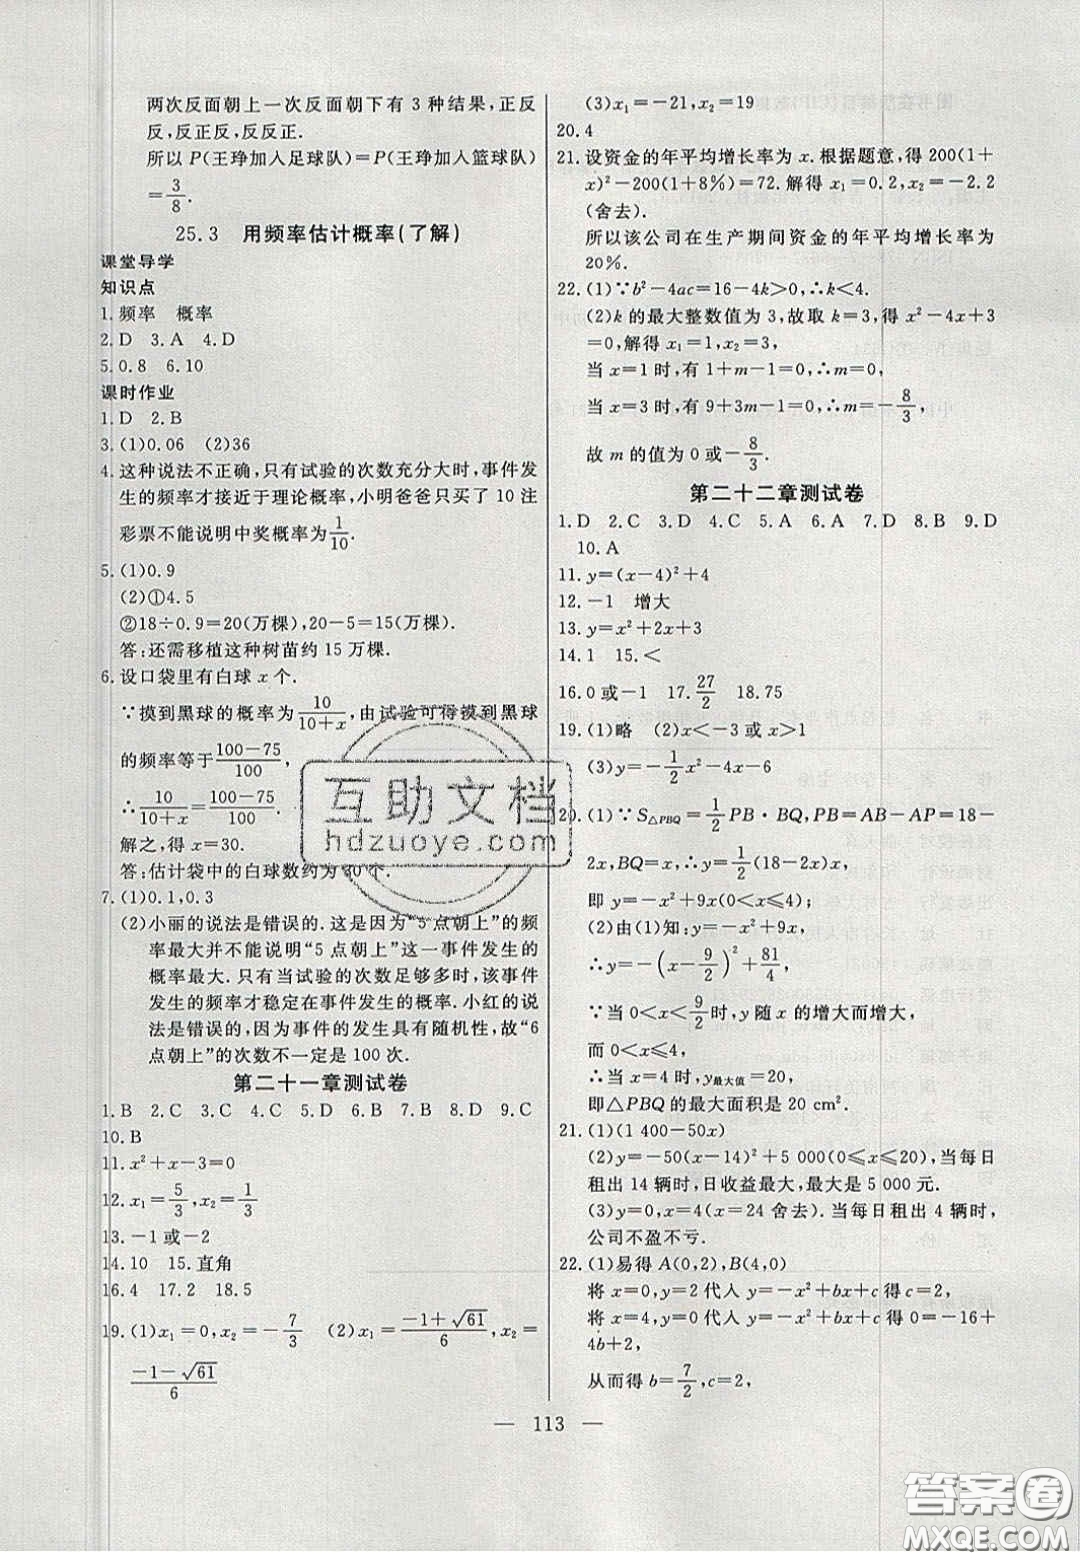 两次反面朝上一次反面朝下有 3 种结果,正反
反,反正反,反反正.
所以 P(王琤加入足球队)=P(王琤加入篮球队)
=3/8.
25.3 用频率估计概率(了解)
课堂导学
知识点
1.频率 概率
2.D 3.A 4.D
5.0.8 6.10
课时作业
1.D 2.B
3.(1)0.06 (2)36
4.这种说法不正确,只有试验的次数充分大时,事件发
生的频率才接近于理论概率,小明爸爸只买了 10 注
彩票不能说明中奖概率为1/10.
5.(1)0.9
(2)①4.5
②18÷0.9=20(万棵),20-5=15(万棵).
答:还需移植这种树苗约 15 万棵.
6.设口袋里有白球 x 个.
∵摸到黑球的概率为10/(10+x),由试验可得摸到黑球
的频率等于(100-75)/100,
∴10/(10+x)=(100-75)/100.
解之,得 x=30.
答:估计袋中的白球数约为 30 个.
7.(1)0.1,0.3
(2)小丽的说法是错误的.这是因为“5 点朝上”的频
率最大并不能说明“5 点朝上”这一事件发生的
概率最大.只有当试验的次数足够多时,该事件
发生的频率才稳定在事件发生的概率.小红的说
法是错误的,因为事件的发生具有随机性,故“6
点朝上”的次数不一定是 100 次.
第二十一章测试卷
1.B 2.C 3.C 4.C 5.D 6.B 7.B 8.D 9.C
10.B
11.x²+x-3=0
12.x₁=5/3,x₂=1/3
13.-1 或-2
14.10 15.直角
16.4 17.2 18.5
19.(1)x₁=0,x₂=-7/3 (2)x₁=(-1+√61)/6,x₂=
(-1-√61)/6
(3)x₁=-21,x₂=19
20.4
21.设资金的年平均增长率为 x.根据题意,得 200(1+
x)²-200(1+8%)=72.解得 x₁=0.2,x₂=-2.2
(舍去).
所以该公司在生产期间资金的年平均增长率为
20%.
22.(1)∵b²-4ac=16-4k>0,∴k<4.
(2)k 的最大整数值为 3,故取 k=3,得 x²-4x+3
=0,解得 x₁=1,x₂=3,
当 x=1 时,有 1+m-1=0,∴m=0,
当 x=3 时,有 9+3m-1=0,∴m=-8/3,
故 m 的值为 0 或-8/3.
第二十二章测试卷
1.D 2.C 3.D 4.C 5.A 6.A 7.D 8.B 9.D
10.A
11.y=(x-4)²+4
12.-1 增大
13.y=x²+2x+3
14.1 15.<
16.0 或-1 17.27/2 18.75
19.(1)略 (2)x<-3 或 x>1
(3)y=-1/2x²-4x-6
20.(1)∵S△PBQ=1/2PB·BQ,PB=AB-AP=18-
2x,BQ=x,∴y=1/2(18-2x)x,
即 y=-x²+9x(0<x≤4);
(2)由(1)知:y=-x²+9x,
∴y=-(x-9/2)²+81/4,
∵当 0<x<9/2时,y 随 x 的增大而增大,
而 0<x≤4,
∴当 x=4 时,y最大值=20,
即△PBQ 的最大面积是 20 cm².
21.(1)(1 400-50x)
(2)y=-50(x-14)²+5 000(0≤x≤20),当每日
租出 14 辆时,日收益最大,最大是 5 000 元.
(3)y=0,x=4(x=24 舍去).当每日租出 4 辆时,
公司不盈不亏.
22.(1)易得 A(0,2),B(4,0)
将 x=0,y=2 代入 y=-x²+bx+c 得 c=2,
将 x=4,y=0 代入 y=-x²+bx+c 得 0=-16+
4b+2,
从而得 b=7/2,c=2,
— 113 —
互助文档
hdzuoye.com
答案圈
MXQE.COM